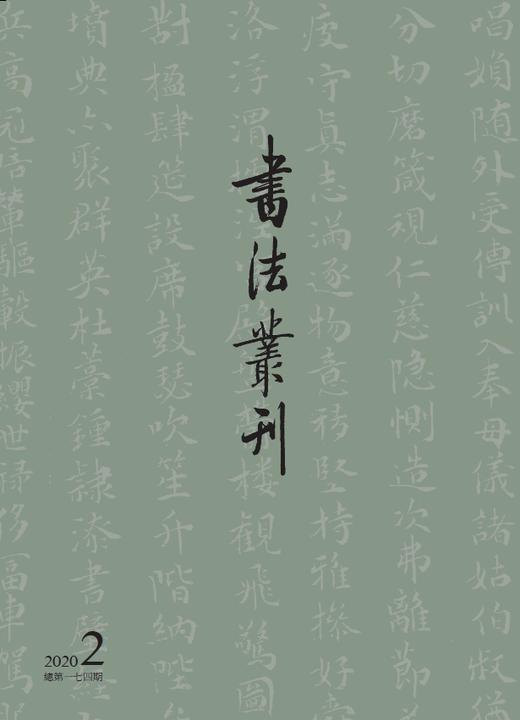 書法叢刊
唱婦随外受傅訓入奉母儀諸姑伯叔猶
分切磨箴規仁慈隐惻造次弗離節
疲守真志滿逐物意移堅持雅操好
洛浮渭樓觀飛驚圖
對楹肆筵設席鼓瑟吹笙升階納陛
墳典亦聚群英杜藁鍾隷漆書壁經
兵高冠陪輦驅轂振纓世禄侈富車駕肥
2020 2
總第一七四期